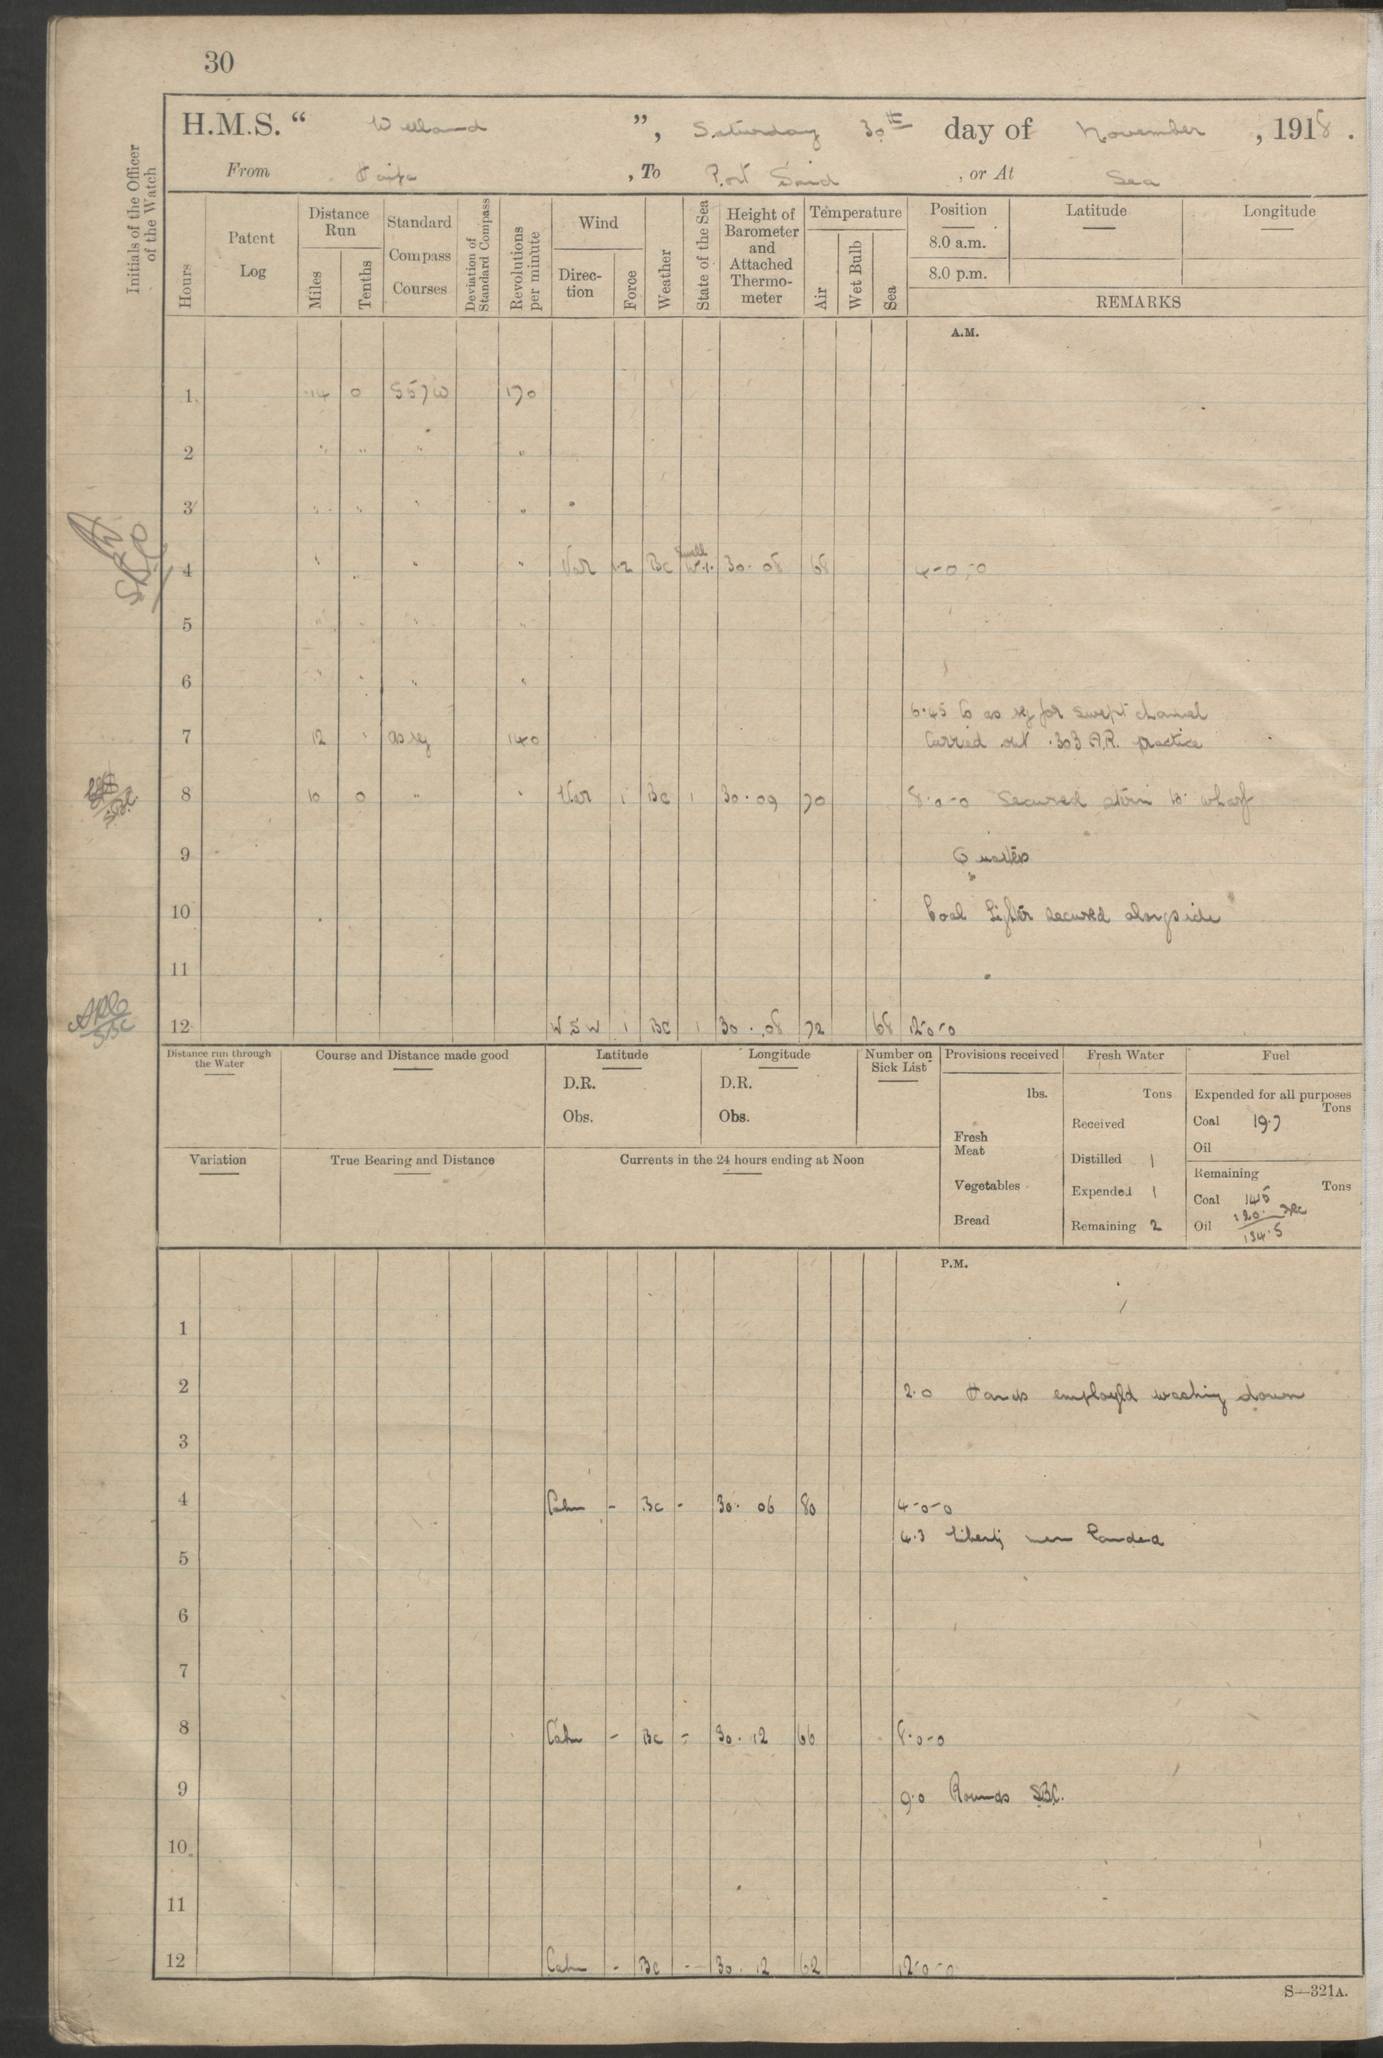 30
H.M.S. “ Welland ”, Saturday 30th day of November , 1918 .
From Haifa , To Port Said , or At Sea
Initials of the Officer of the Watch
Hours
Patent Log
Distance Run
Miles
Tenths
Standard Compass Courses
Deviation of Standard Compass
Revolutions per minute
Wind
Direction
Force
Weather
State of the Sea
Height of Barometer and Attached Thermometer
Temperature
Air
Wet Bulb
Sea
Position
8.0 a.m.
8.0 p.m.
Latitude
Longitude
REMARKS
A.M.
1 14 0 S57W 170
2 " " " "
3 " " " "
4 " " " " Var 1-2 BC Swell 30.08 68 4-0-0
5 " " " "
6 " " " "
6.45 Co as req for swept channel
7 12 " as req 140 Carried out .303 A.R. practice
8 10 0 " " Var 1 BC 1 30.09 70 8-0-0 Secured stern to wharf
9 Quarters
10 Coal Lighter secured alongside
11
12 WSW 1 BC 1 30.08 72 68 12-0-0
Distance run through the Water
Course and Distance made good
Latitude
D.R.
Obs.
Longitude
D.R.
Obs.
Number on Sick List
Provisions received
lbs.
Fresh Meat
Vegetables
Bread
Fresh Water
Tons
Received
Distilled 1
Expended 1
Remaining 2
Fuel
Expended for all purposes
Tons
Coal 19.7
Oil
Remaining
Tons
Coal 145
120. SBC
Oil 134.5
Variation
True Bearing and Distance
Currents in the 24 hours ending at Noon
P.M.
1
2 2.0 Hands employed washing down
3
4 Calm - BC - 30.06 80 4-0-0
4.3 Liberty men landed
5
6
7
8 Calm - BC - 30.12 66 8-0-0
9 9.0 Rounds SBC.
10
11
12 Calm - BC - 30.12 62 12-0-0
S—321A.